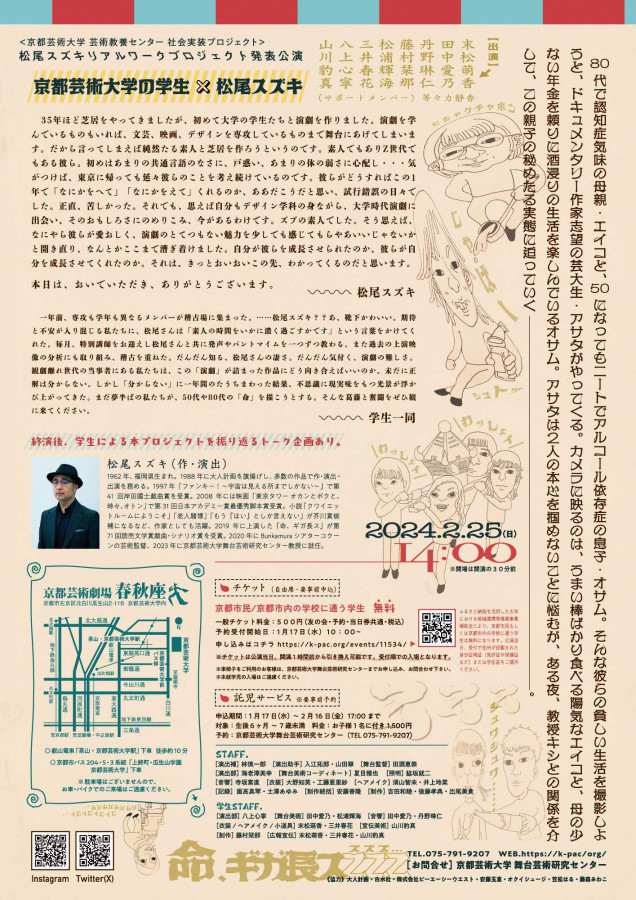 <京都芸術大学 芸術教養センター 社会実装プロジェクト>
松尾スズキリアルワークプロジェクト発表公演
京都芸術大学の学生×松尾スズキ
【出演】
末松萌香
田中愛乃
丹野琳仁
藤村菜那
松浦輝海
三井春花
八上心寧
山川豹真
(サポートメンバー) 等々力静香
80代で認知症気味の母親・エイコと、50になってもニートでアルコール依存症の息子・オサム。そんな彼らの貧しい生活を撮影しよ
うと、ドキュメンタリー作家志望の芸大生・アサダがやってくる。カメラに映るのは、うまい棒ばかり食べる陽気なエイコと、母の少
ない年金を頼りに酒浸りの生活を楽しんでいるオサム。アサダは2人の本心を掴めないことに悩むが、ある夜、教授キシとの関係を介
して、この親子の秘めたる実態に迫っていく
35年ほど芝居をやってきましたが、初めて大学の学生たちと演劇を作りました。演劇を学
んでいるものもいれば、文芸、映画、デザインを専攻しているものまで舞台にあげてしまいま
す。だから言ってしまえば純然たる素人と芝居を作ろうというのです。素人でもありZ世代で
もある彼ら。初めはあまりの共通言語のなさに、戸惑い、あまりの体の弱さに心配し・・・気
がつけば、東京に帰っても延々彼らのことを考え続けているのです。彼らがどうすればこの1
年で「なにかをへて」「なにかをえて」くれるのか、ああだこうだと思い、試行錯誤の日々で
した。正直、苦しかった。それでも、思えば自分もデザイン学科の身ながら、大学時代演劇に
出会い、そのおもしろさにのめりこみ、今があるわけです。ズブの素人でした。そう思えば、
なにやら彼らが愛おしく、演劇のとてつもない魅力を少しでも感じてもらやあいいじゃないか
と開き直り、なんとかここまで漕ぎ着けました。自分が彼らを成長させられたのか、彼らが自
分を成長させてくれたのか。それは、きっとおいおいこの先、わかってくるのだと思います。
本日は、おいていただき、ありがとうございます。
松尾スズキ
一年前、専攻も学年も異なるメンバーが稽古場に集まった。……松尾スズキ？？あ、靴下かわいい。期待
と不安が入り混じる私たちに、松尾さんは「素人の時間をいかに濃く過ごすかです」という言葉をかけてく
れた。毎月、特別講師をお迎えし松尾さんと共に発声やパントマイムを一つずつ教わる。また過去の上演映
像の分析にも取り組み、稽古を重ねた。だんだん知る、松尾さんの凄さ。だんだん気付く、演劇の難しさ。
観劇離れ世代の当事者にある私たちは、この「演劇」が詰まった作品にどう向き合えばいいのか。未だに正
解は分からない。しかし「分からない」に一年間のたうちまわった結果、不思議に現実味をもつ光景が浮か
び上がってきた。まだ夢半ばの私たちが、50代や80代の「命」を描こうとする。そんな葛藤と奮闘をぜひ観
に来てください。
学生一同
終演後、学生による本プロジェクトを振り返るトーク企画あり。
松尾スズキ（作・演出）
1962年、福岡県生まれ。1988年に大人計画を旗揚げし、多数の作品で作・演出・
出演を務める。1997年「ファンキー！～宇宙は見える所までしかない～」で第
41回岸田國士戯曲賞を受賞。2008年には映画「東京タワー オカンとボクと、
時々、オトン」で第31回日本アカデミー賞最優秀脚本賞受賞。小説「クワイエッ
トルームにようこそ」「老人賭博」「もう「はい」としか言えない」が芥川賞候
補になるなど、作家としても活躍。2019年に上演した「命、ギガ長ス」が第
71回読売文学賞戯曲・シナリオ賞を受賞。2020年にBunkamuraシアターコクー
ンの芸術監督、2023年に京都芸術大学舞台芸術研究センター教授に就任。
わっしょい
わっしょい
2024.2.25(日)
14:00
※開場は開演の30分前
京都芸術劇場 春秋座
京都市左京区北白川瓜生山2-116 京都芸術大学内
北大路通
今出川通
丸太町通
三条通
◎叡山電車「茶山・京都芸術大学駅」下車 徒歩約10分
◎京都市バス204・5・3系統「上終町・瓜生山学園
京都芸術大学前」下車
※駐車場はございませんので、
お車・バイクでのご来場はご遠慮ください。
チケット（自由席・要事前申込）
京都市民/京都市内の学校に通う学生 無料
一般チケット料金：500円（友の会・予約・当日券共通・税込）
予約受付開始日：1月17日(水) 10:00～
申し込みはコチラ https://k-pac.org/events/11534/
※チケットは公演当日、開演1時間前から引き換え可能です。受付順での入場となります。
※車椅子をご利用のお客様は、京都芸術大学舞台芸術研究センターまでお申し込み、お問合せ下さい。
※未就学児の入場はご遠慮ください。
託児サービス ※要事前予約
申込期間：1月17日(水)～2月16日(金)17:00まで
対象：生後6ヶ月～7歳未満 料金：お子様1名に付き1,500円
予約：京都芸術大学舞台芸術研究センター（TEL 075-791-9207）
STAFF.
【演出補】林慎一郎 【演出助手】入江拓郎・山田翠 【舞台監督】田淵意景
【演出部】海老澤美幸 【舞台美術コーディネート】夏目雅也 【照明】脇坂統二
学生STAFF.
【演出部】八上心寧 【舞台美術】田中愛乃・松浦輝海 【音響】田中愛乃・丹野琳仁
【衣装／ヘアメイク／小道具】末松萌香・三井春花 【宣伝美術】山川豹真
【制作】藤村菜那 【広報宣伝】末松萌香・三井春花・山川豹真
Instagram
Twitter(X)
命、ギガ長スズズズズズズ
TEL.075-791-9207 WEB.https://k-pac/org/
【お問合せ】京都芸術大学 舞台芸術研究センター
《協力》大人計画・白水社・株式会社ビーエーシーウエスト・安藤玉恵・オクイシュージ・笠松はる・藤森みわこ